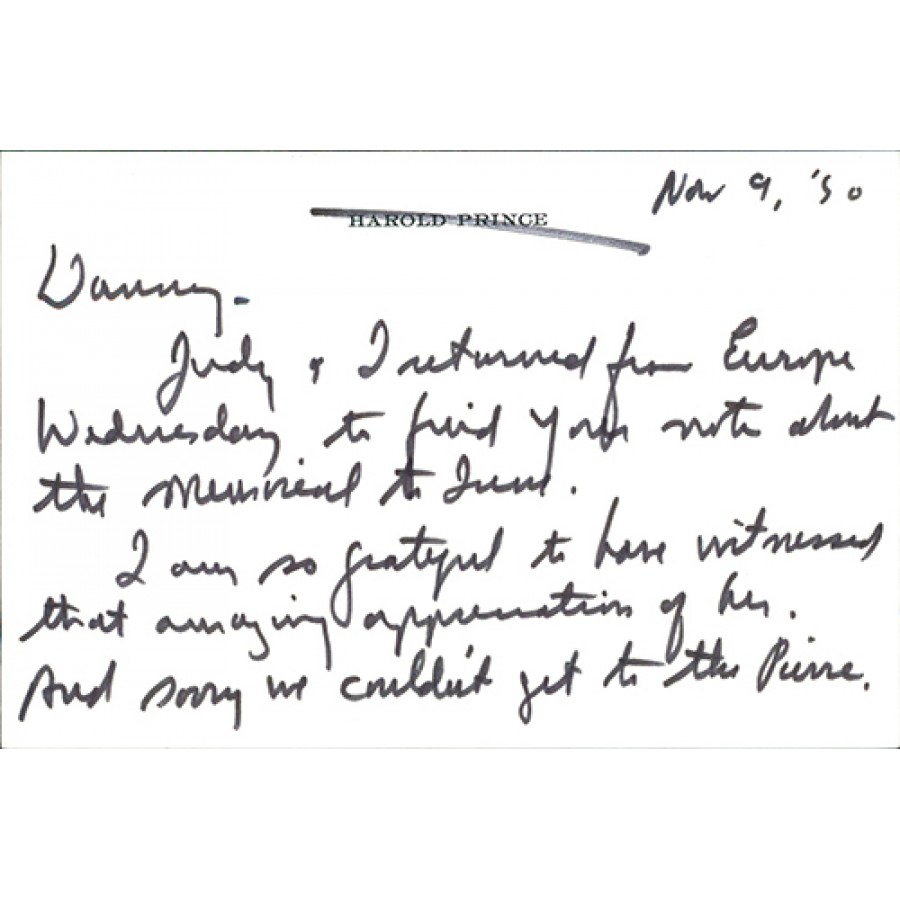 Nov 9, '90
HAROLD PRINCE
Danny -
Judy & I returned from Europe
Wednesday to find your note about
the memorial to June.
I am so grateful to have witnessed
that amazing appreciation of her.
And sorry we couldn't get to the Pierre.